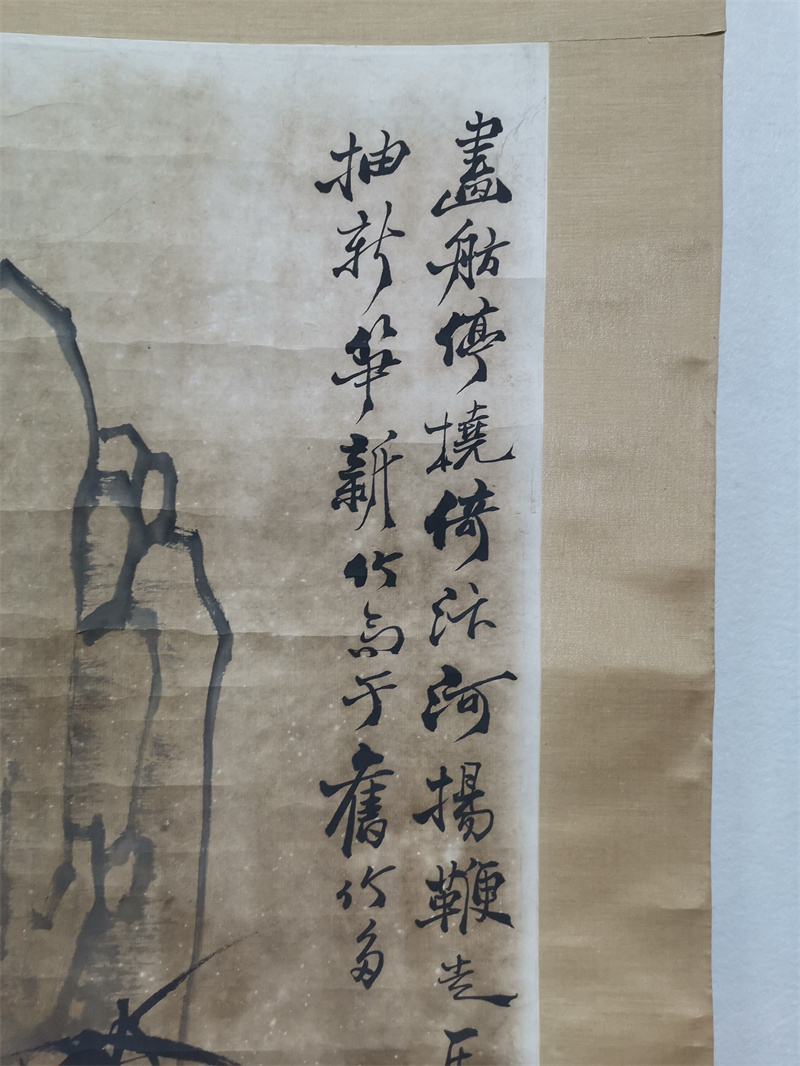 畫舫停橈倚汴河揚鞭走
抽新笋新竹高于舊竹多